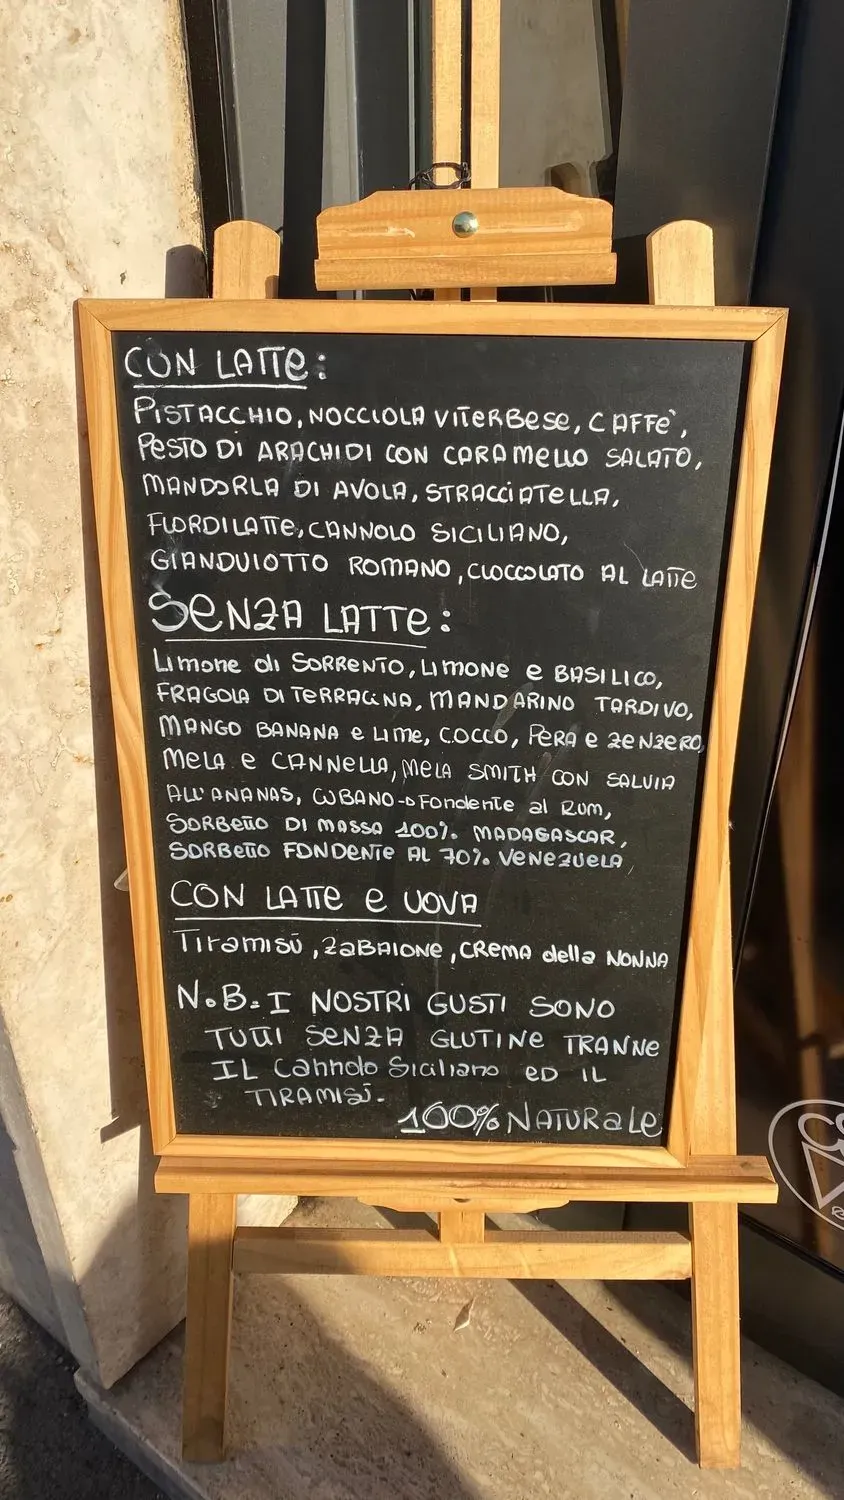 CON LATTE:
PISTACCHIO, NOCCIOLA VITERBESE, CAFFÈ,
PESTO DI ARACHIDI CON CARAMELLO SALATO,
MANDORLA DI AVOLA, STRACCIATELLA,
FIORDILATTE, CANNOLO SICILIANO,
GIANDUIOTTO ROMANO, CIOCCOLATO AL LATTE
SENZA LATTE:
Limone di SORRENTO, LIMONE e BASILICO,
FRAGOLA DI TERRACINA, MANDARINO TARDIVO,
MANGO BANANA e LIME, COCCO, PERA e ZENZERO,
MELA e CANNELLA, MELA SMITH CON SALVIA
ALL'ANANAS, CUBANO→Fondente al Rum,
SORBETTO DI MASSA 100% MADAGASCAR,
SORBETTO FONDENTE AL 70% VENEZUELA,
CON LATTE e UOVA
Tiramisù, ZABAIONE, CREMA della NONNA
N.B. I NOSTRI GUSTI SONO
TUTTI SENZA GLUTINE TRANNE
IL Cannolo Siciliano ED IL
TIRAMISÙ.
100% NATURALE